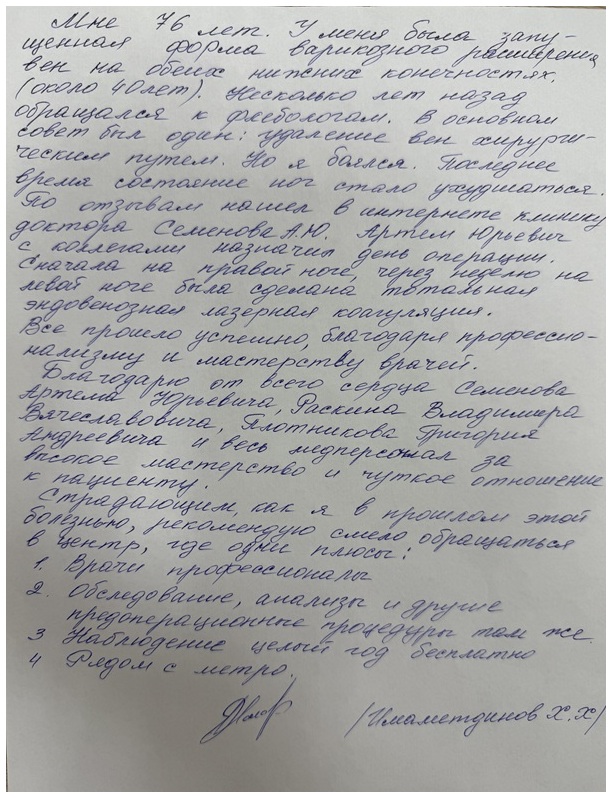 Мне 76 лет. У меня была запу-
щенная форма варикозного расширения
вен на обеих нижних конечностях,
(около 40 лет). Несколько лет назад
обращался к флебологам. В основном
совет был один: удаление вен хирурги-
ческим путем. Но я боялся. Последнее
время состояние ног стало ухудшаться.
По отзывам нашел в интернете клинику
доктора Семенова А.Ю. Артем Юрьевич
с коллегами назначил день операции.
Сначала на правой ноге через неделю на
левой ноге была сделана тотальная
эндовенозная лазерная коагуляция.
Все прошло успешно, благодаря профессио-
нализму и мастерству врачей.
Благодарю от всего сердца Семенова
Артема Юрьевича, Раскина Владимира
Вячеславовича, Плотникова Григория
Андреевича и весь медперсонал за
высокое мастерство и чуткое отношение
к пациенту.
Страдающим, как я в прошлом этой
болезнью, рекомендую смело обращаться
в центр, где одни плюсы:
1. Врачи профессионалы
2. Обследование, анализы и другие
предоперационные процедуры там же.
3 Наблюдение целый год бесплатно
4 Рядом с метро.
/Имаметдинов Х.Х/